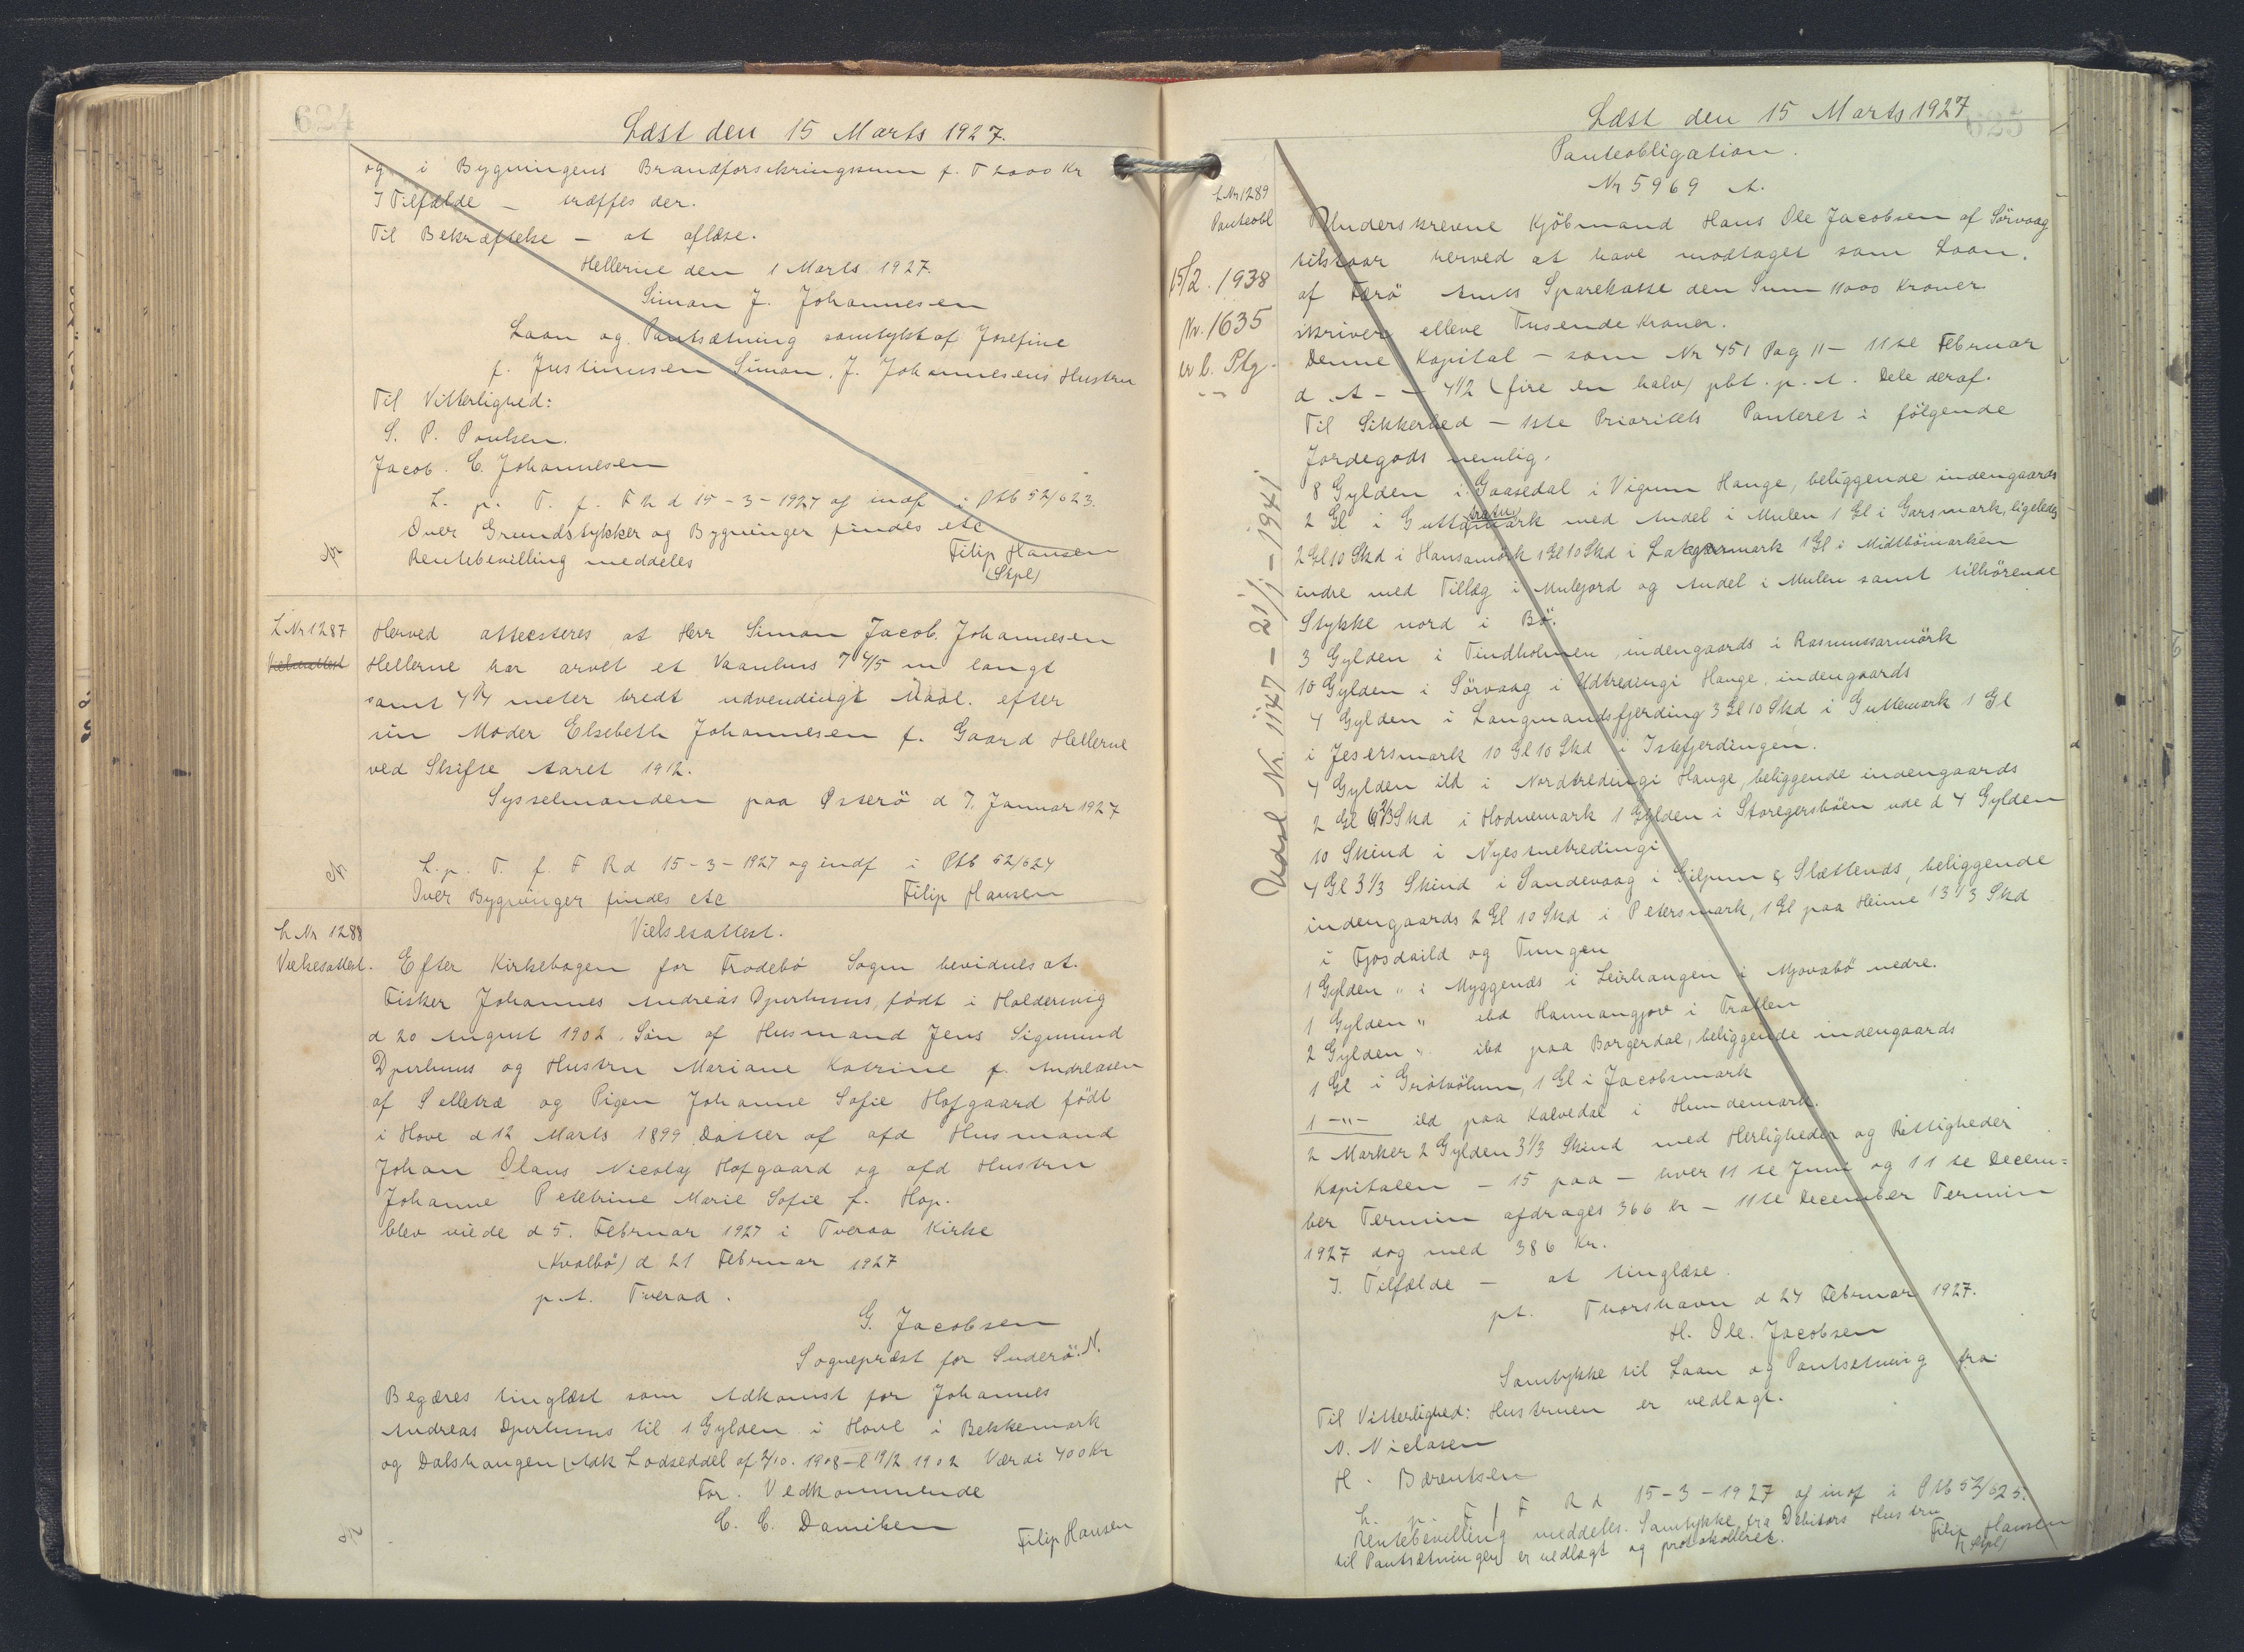 624
Læst den 15 Marts 1927.
og i Bygningens Brandforsikringssum f. T 2000 Kr
I Tilfælde — træffes der.
Til Bekræftelse — at aflæse.
Hellerne den 1 Marts 1927.
Simon J. Johannesen
Laan og Pantsætning samtykt af Josefine
f. Justinussen Simon J. Johannesens Hustru
Til Vitterlighed:
S. P. Poulsen.
Jacob C. Johannesen
L. p. T. f. F R d 15-3-1927 og indf i Ptb 52/623.
Over Grundstykker og Bygninger findes etc
Rentebevilling meddeles
Filip Hansen
(Stpl)
L Nr 1287
Vielsesattest
Herved attesteres at Herr Simon Jacob Johannesen
Hellerne har arvet et Vaanhus 7 4/5 m langt
samt 4 1/4 meter bredt udvendingt Maal. efter
sin Moder Elsebeth Johannesen f. Gaard Hellerne
ved Skifte Aaret 1912.
Sysselmanden paa Østerö d 7. Januar 1927
L. p. T. f. F R d 15-3-1927 og indf i Ptb 52/624
Over Bygninger findes etc
Filip Hansen
L Nr 1288
Vielsesattest.
Vielsesattest.
Efter Kirkebogen for Frodebö Sogn bevidnes at
Fisker Johannes Andreas Djurhuus, födt i Haldersvig
d 20 August 1902. Sön af Husmand Jens Sigmund
Djurhuus og Hustru Mariane Katrine f. Andreasen
af Selletræ og Pigen Johanne Sofie Hofgaard födt
i Hove d 12 Marts 1899 Datter af afd Husmand
Johan Olaus Nicolaj Hofgaard og afd Hustru
Johanne Petebrine Marie Sofie f. Hop.
blev viede d 5. Februar 1927 i Tveraa Kirke
(Kvalbö) d 21 Februar 1927
p.t. Tveraa.
G. Jacobsen
Sognepræst for Suderö N.
Begæres tinglæst som Adkomst for Johannes
Andreas Djurhuus til 1 Gylden i Hove i Bekkemark
og Dalshangen (Adk Lodseddel af 2/10. 1908 - l 19/2 1902 Værdi 400 Kr
For Vedkommende
C. C. Danielsen
Filip Hansen
625
Læst den 15 Marts 1927
Panteobligation.
Nr 5969 A.
L Nr 1289
Panteobl
15/2. 1938
Nr. 1635
er l. Ptg.
Udsl Nr. 1147 - 21/1 - 1941.
Underskrevne Kjöbmand Hans Ole Jacobsen af Sörvaag
tilstaar herved at have modtaget som Laan.
af Færö Amts Sparekasse den Sum 11000 Kroner
skriver elleve Tusende Kroner.
Denne Kapital — som Nr 451 Pag 11 — 11te Februar
d. A — — 4 1/2 (fire en halv) pCt. p. A. Dele deraf.
Til Sikkerhed — 1ste Prioritets Panteret i følgende
Jordegods nemlig.
8 Gylden i Gaasedal i Vigum Hauge, beliggende indengaards
2 Gl i Guttamark med Andel i Mulen 1 Gl i Garsmark, ligeledes
2 Gl 10 Skd i Hansamörk 1 Gl 10 Skd i Lakgarmark 1 Gl i Midtbömarken
indre med Tillæg i Mulejord og Andel i Mulen samt tilhörende
Stykke nord i Bö.
3 Gylden i Tindholmen, indengaards i Rasmussarmörk
10 Gylden i Sörvaag i Udtredingi Hauge, indengaards
4 Gylden i Langmandsfjerding 3 Gl 10 Skd i Guttemark 1 Gl
i Jesersmark 10 Gl 10 Skd i Istefjerdingen.
4 Gylden ild i Nordtredingi Hauge, beliggende indengaards
2 Gl 6 2/3 Skd i Hodnemark 1 Gylden i Storegersböen ude d 4 Gylden
10 Skind i Nyesmetredingi
4 Gl 3 1/3 Skind i Sandevaag i Gilpum & Slættends, beliggende
indengaards 2 Gl 10 Skd i Petersmark, 1 Gl paa Heime 13 1/3 Skd
i Fjosdaild og Tungen
1 Gylden " i Myggenæs i Leirhangen i Mjovabö nedre.
1 Gylden " ibd Hannangjov i Trøllen
2 Gylden " ibd paa Borgerdal, beliggende indengaards
1 Gl i Grötvölum, 1 Gl i Jacobsmark
1 -"- ild paa Kalvedal i Hundemark.
2 Marker 2 Gylden 3 1/3 Skind med Herligheder og Rettigheder
Kapitalen — 15 paa — hver 11te Juni og 11te Decem=
ber Termin afdrages 366 Kr — 11te December Termin
1927 dog med 386 Kr.
I Tilfælde — at tinglæse.
pt. Thorshavn d 24 Februar 1927.
H. Ole. Jacobsen
Samtykke til Laan og Pantsætning fra
Til Vitterlighed: Hustruen er vedlagt.
N. Niclasen
H. Bærentsen
L. p. T f F R d 15-3-1927 og indf i Ptb 52/625.
Rentebevilling meddeles. Samtykke fra Debitors Hustru
til Pantsætningen er vedlagt og protokolleret.
Filip Hansen
(Stpl)